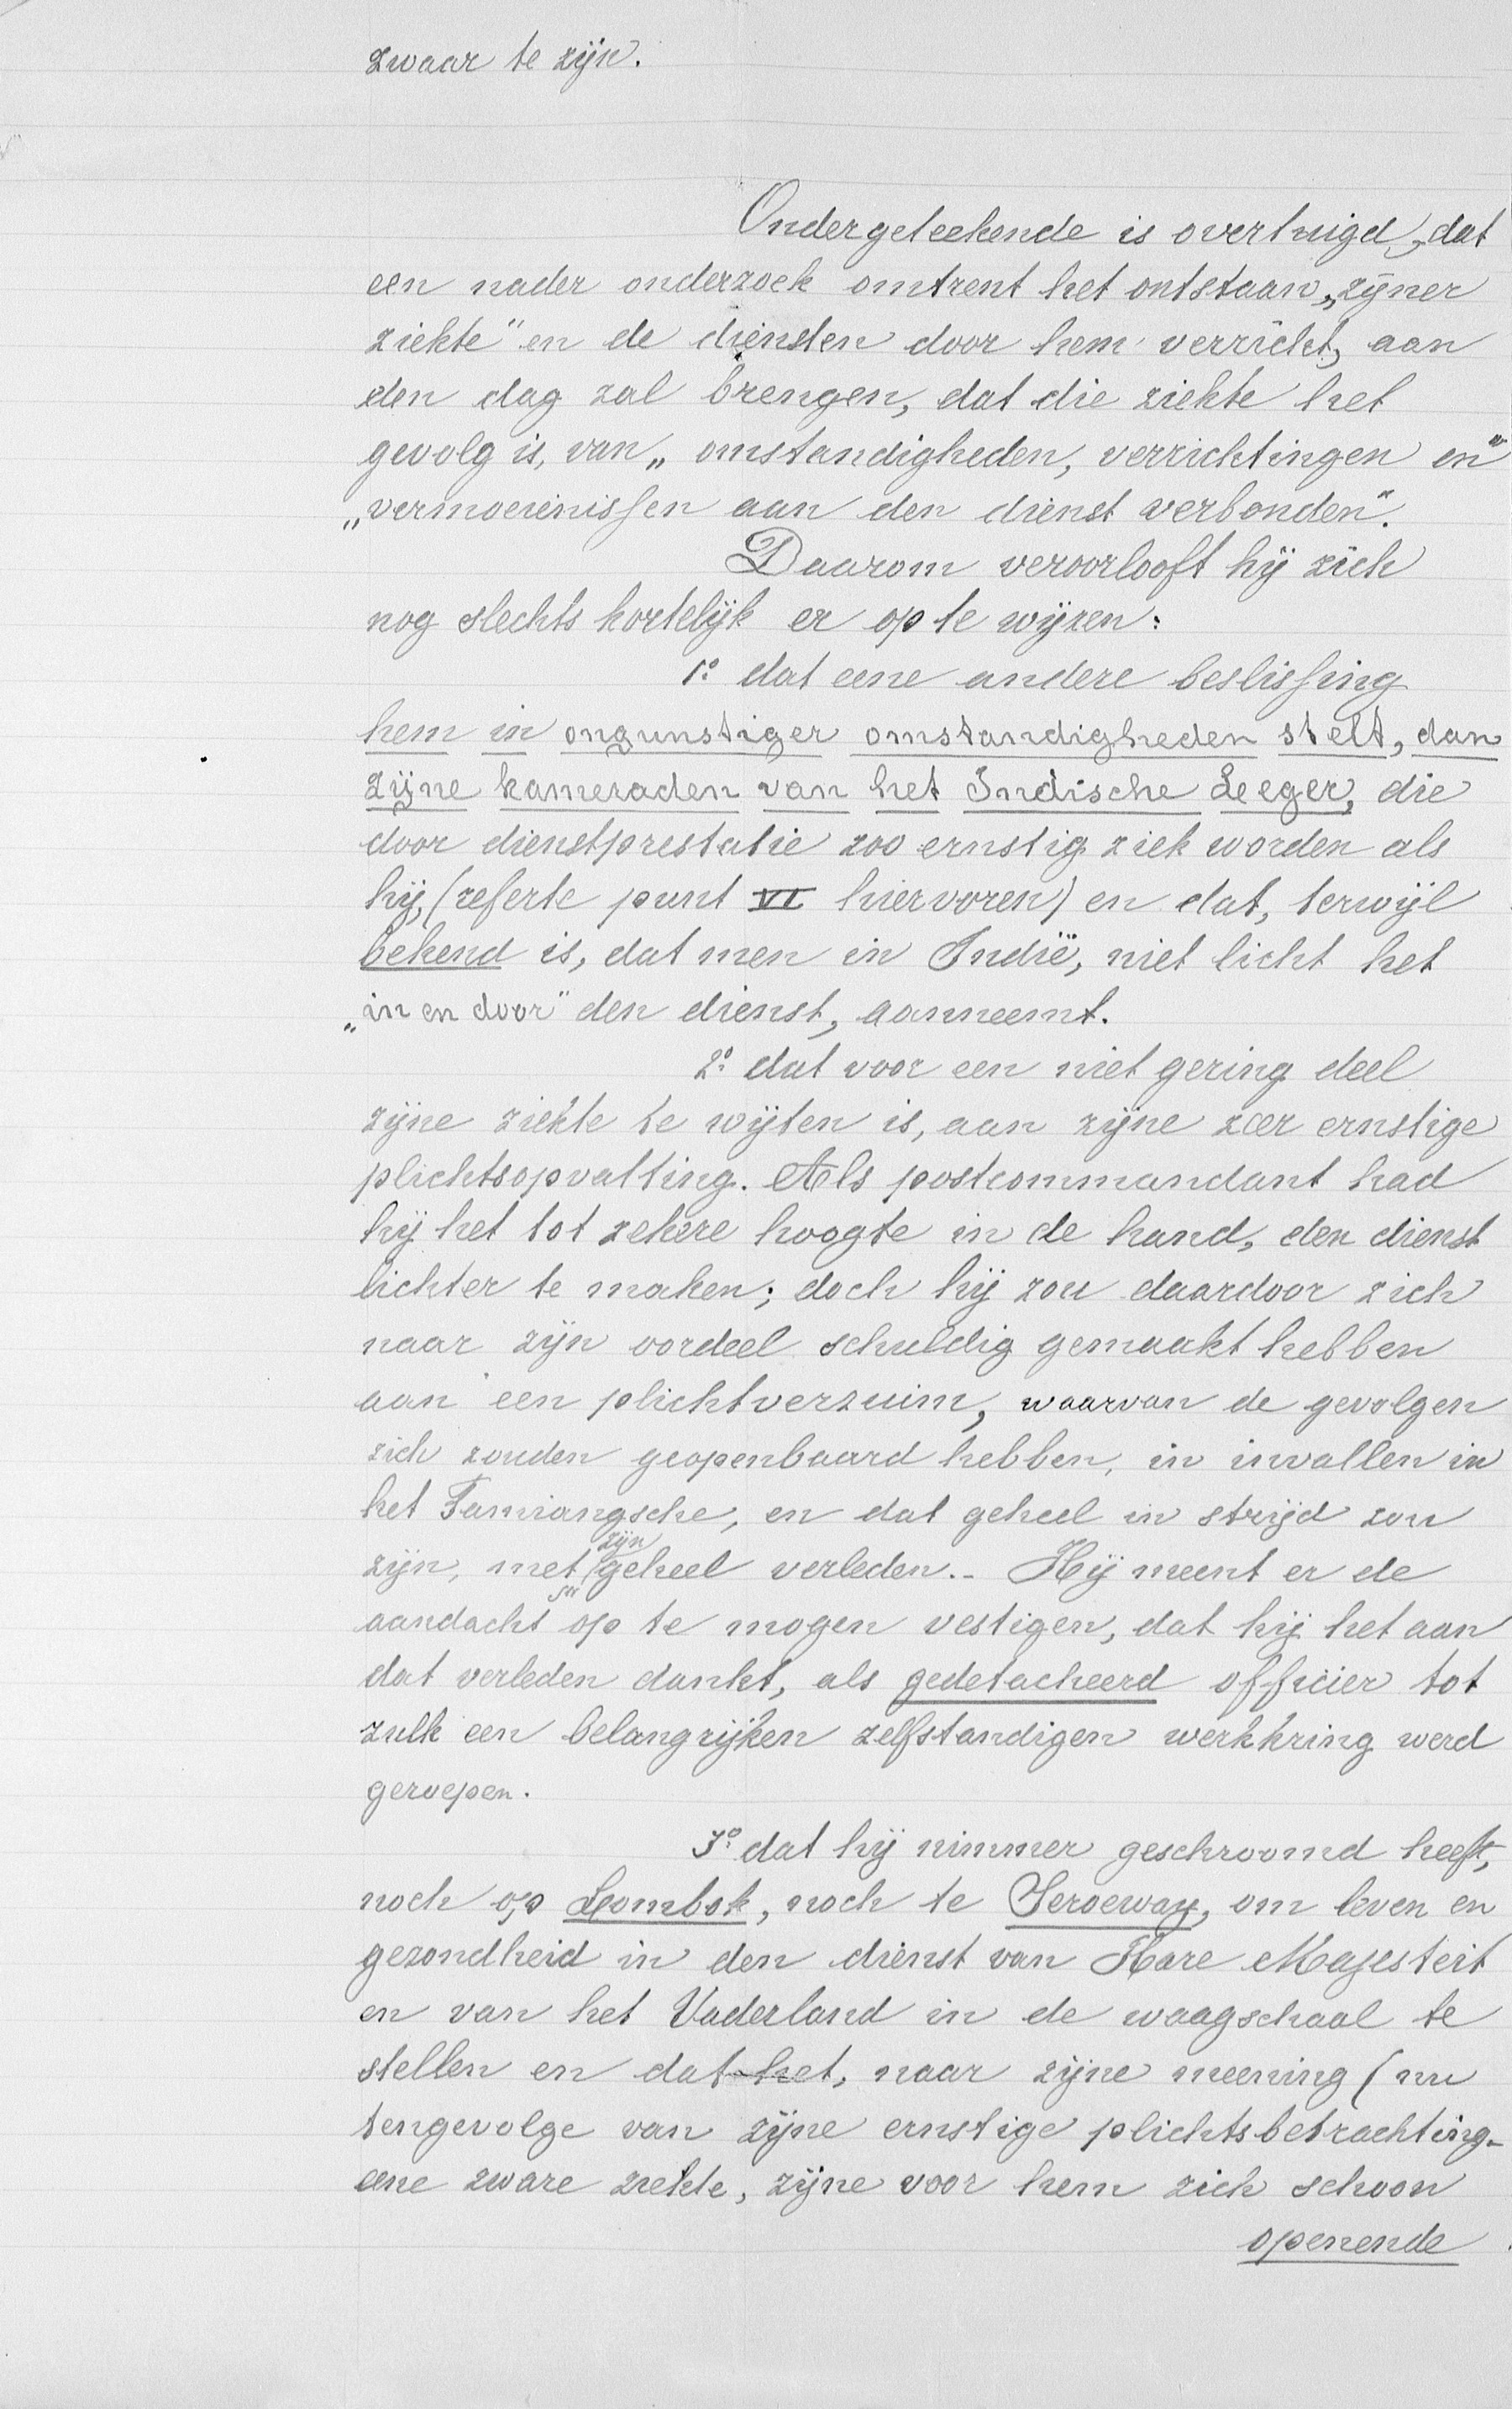 zwaar te zijn.
Ondergeteekende is overtuigd, dat
een nader onderzoek omtrent het ontstaan „zijner
ziekte" en de diensten door hem verricht, aan
den dag zal brengen, dat die ziekte het
gevolg is, van „omstandigheden, verrichtingen en"
„vermoeienissen aan den dienst verbonden".
Daarom veroorlooft hij zich
nog slechts kortelijk er op te wijzen:
1o. dat eene andere beslissing
hem in ongunstiger omstandigheden stelt, dan
zijne kameraden van het Indische Leger, die
door dienstprestatie zoo ernstig ziek worden als
hij, (referte punt VI hiervoren) en dat, terwijl
bekend is, dat men in Indië, niet licht het
„in en door" den dienst, aanneemt.
2o. dat voor een niet gering deel
zijne ziekte te wijten is, aan zijne zeer ernstige
plichtsopvatting. Als postcommandant had
hij het tot zekere hoogte in de hand, den dienst
lichter te maken; doch hij zou daardoor zich
naar zijn oordeel schuldig gemaakt hebben
aan een plichtverzuim, waarvan de gevolgen
zich zouden geopenbaard hebben, in invallen in
het Tamiangsche, en dat geheel in strijd zou
zijn, met zijn geheel verleden.- Hij meent er de
aandacht op te mogen vestigen, dat hij het aan
dat verleden dankt, als gedetacheerd officier tot
zulk een belangrijken zelfstandigen werkkring werd
geroepen.
3o. dat hij nimmer geschroomd heeft,
noch op Lombok, noch te Seroeway, om leven en
gezondheid in den dienst van Hare Majesteit
en van het Vaderland in de waagschaal te
stellen en dat het, naar zijne meening (nu
tengevolge van zijne ernstige plichtsbetrachting-
eene zware ziekte, zijne voor hem zich schoon
openende